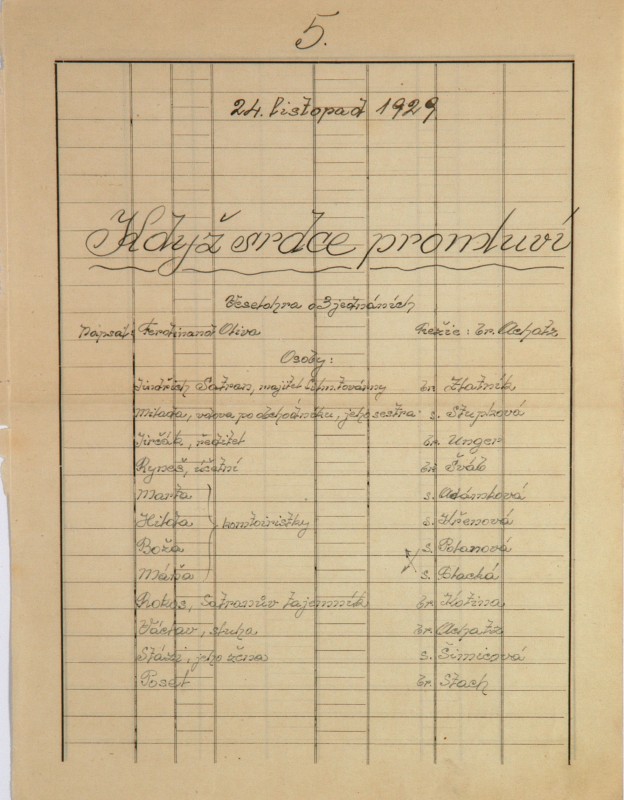 5.
24. listopad 1929
Když srdce promluví
Veselohra o 3 jednáních
Napsal: Ferdinand Oliva Režie: br. Achatz
Osoby:
Jindřich Satran, majitel továrny br. Zlatník
Milada, vdova po obchodníku, jeho sestra s. Stupková
Jiršák, ředitel br. Unger
Ryneš, účetní br. Šváb
Marta s. Adámková
Hilda } kontoiristky s. Křenová
Boža s. Polanová
Máňa s. Blacká
Rokos, Satranův tajemník br. Kotina
Václav, sluha br. Achatz
Stázi, jeho žena s. Šimicová
Posel br. Stach